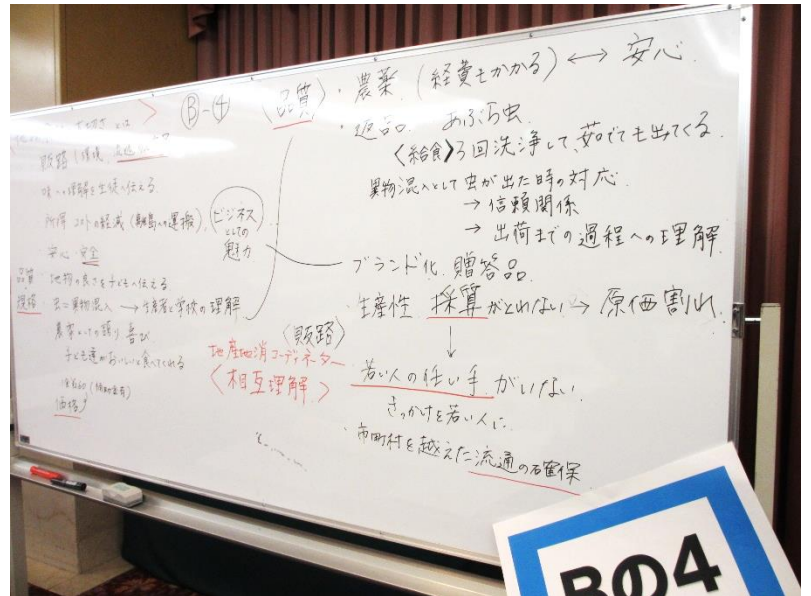 B-④
〈品質〉・農薬（経費もかかる）↔ 安心
・返品 あぶら虫
〈給食〉3回洗浄して、茹でても出てくる
異物混入として虫が出た時の対応
→ 信頼関係
→ 出荷までの過程への理解
ブランド化 贈答品
・生産性 採算がとれない → 原価割れ
↓
若い人の任い手がいない
きっかけを若い人に
・市町村を越えた流通の確保
販路（環境、
味への理解を生徒へ伝える
所得 コストの軽減（離島への運搬）
安心 安全
品質 地物の良さを子どもへ伝える
規格 虫＝異物混入 → 生産者と学校の理解
農家としての誇り 喜び
子ども達がおいしいと食べてくれる
価格
ビジネス
としての
魅力
〈販路〉
地産地消コーディネーター
〈相互理解〉
Bの4